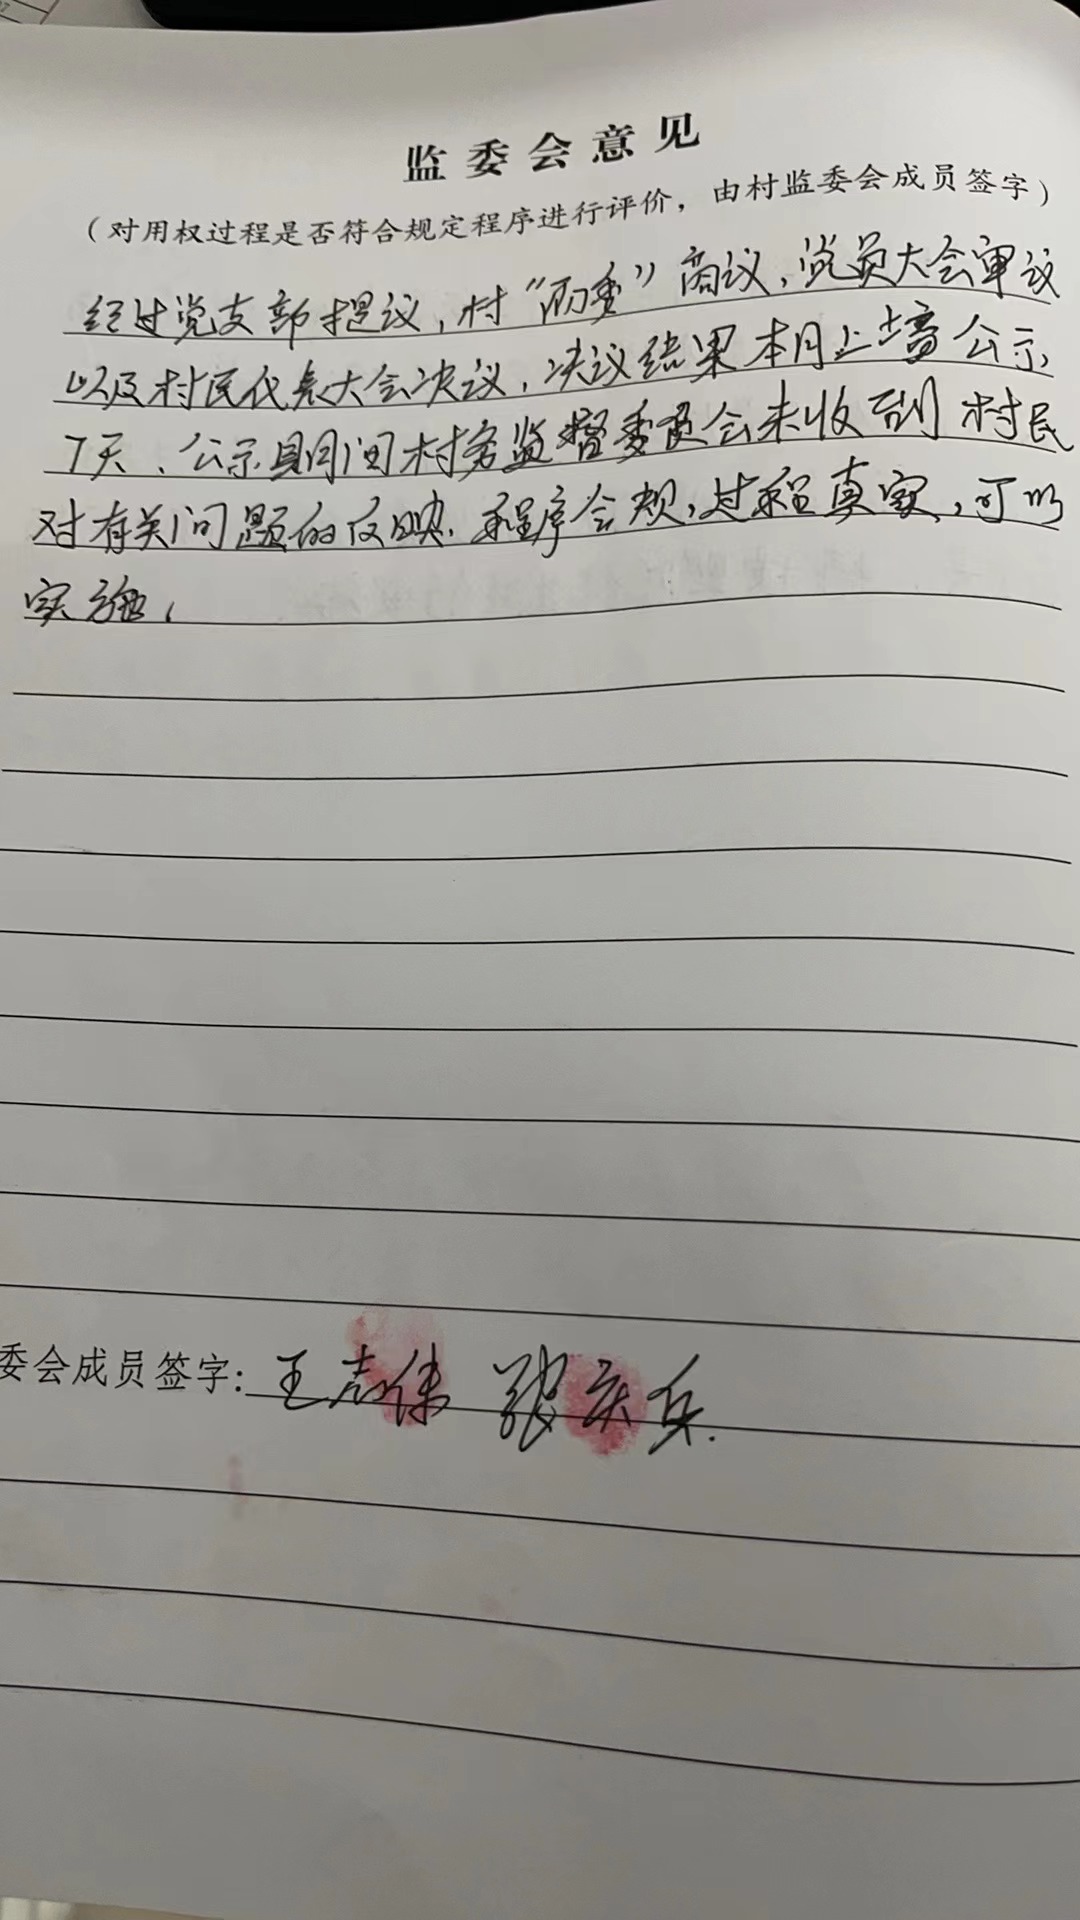 监委会意见
（对用权过程是否符合规定程序进行评价，由村监委会成员签字）
经过党支部提议，村“两委”商议，党员大会审议
以及村民代表大会决议，决议结果本月上墙公示
7天、公示期间村务监督委员会未收到村民
对有关问题的反映，程序合规，过程真实，可以
实施，
委会成员签字：王志伟 张庆兵.